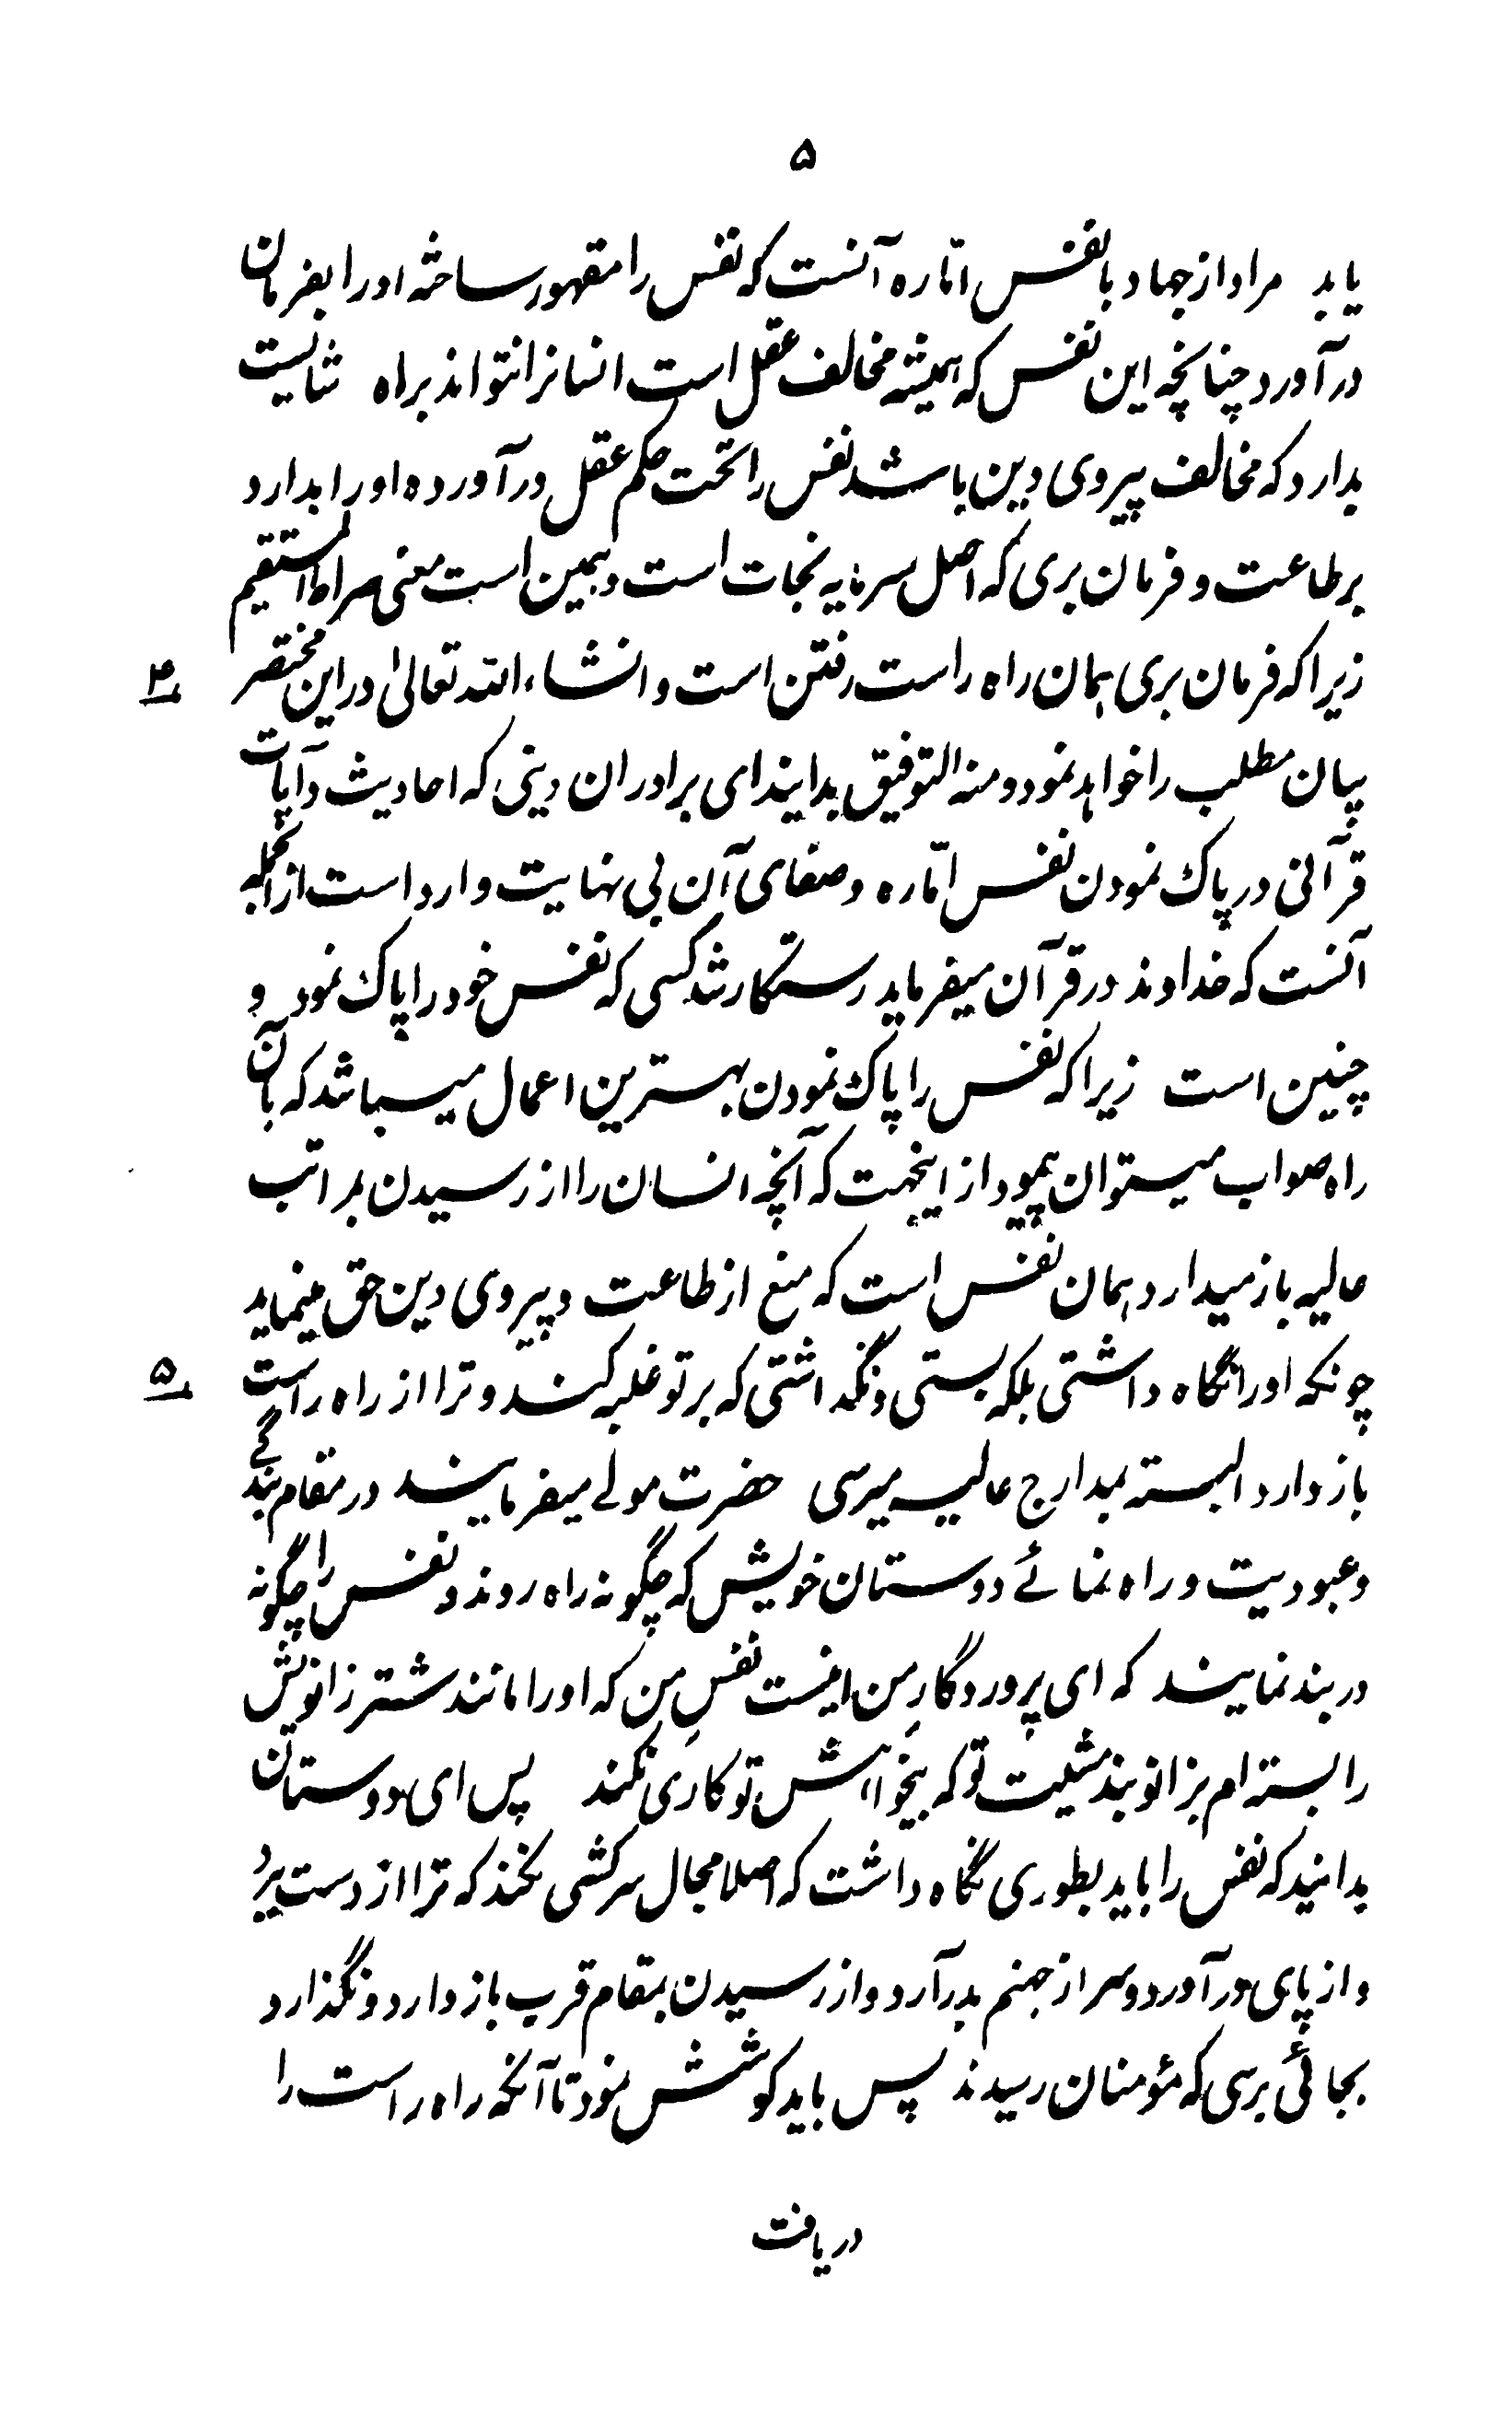 ۵
یابد مراد از جهاد با نفس امّاره آنست که نفس را مقهور ساخته او را بفرمان
درآورد چنانچه این نفس که همیشه مخالف عقل است انسانرا نتواند براه شایست
بدارد که مخالف پیروی دین باشد نفس را تحت حکم عقل درآورده او را بدارد
بر طاعت و فرمان بری که اصل سرمایه نجات است و همین است معنی صراط المستقیم
زیرا که فرمان بری همان راه راست رفتن است و انشاء الله تعالیٰ در این مختصر
۴
بیان مطلب را خواهد نمود و منه التوفیق بدانید ای برادران دینی که احادیث و آیات
قرآنی در پاک نمودن نفس امّاره و صفای آن بی نهایت وارد است از آنجمله
آنست که خداوند در قرآن میفرماید رستگار شد کسی که نفس خود را پاک نمود و
چنین است زیرا که نفس را پاک نمودن بهترین اعمال میباشد که بآن
راه صواب میتوان پیمود از اینجهت که آنچه انسان را از رسیدن بمراتب
عالیه باز میدارد همان نفس است که منع از طاعت و پیروی دین حق مینماید
چونکه او را نگاه داشتی بلکه بستی و نگذاشتی که بر تو غلبه کند و ترا از راه راست
۵
باز دارد البسته بمدارج عالیه میرسی حضرت مولے میفرمایند در مقام بندگے
و عبودیت و راه نمائے دوستان خویش که چگونه راه روند و نفس را چگونه
در بند نمایند که ای پروردگارِ من اینست نفسِ من که او را مانند شتر زانویش
را بسته ام بزانو بند مشیت تو که بیخواهش تو کاری نکند پس ای دوستان
بدانید که نفس را باید بطوری نگاه داشت که اصلا مجال سرکشی نکند که ترا از دست برد
و از پای درآورد و سر از جهنم بدرآرد و از رسیدن بمقام قرب باز دارد و نگذارد
بجائی برسی که مؤمنان رسیدند پس باید کوشش نمود تا آنکه راه راست را
دریافت